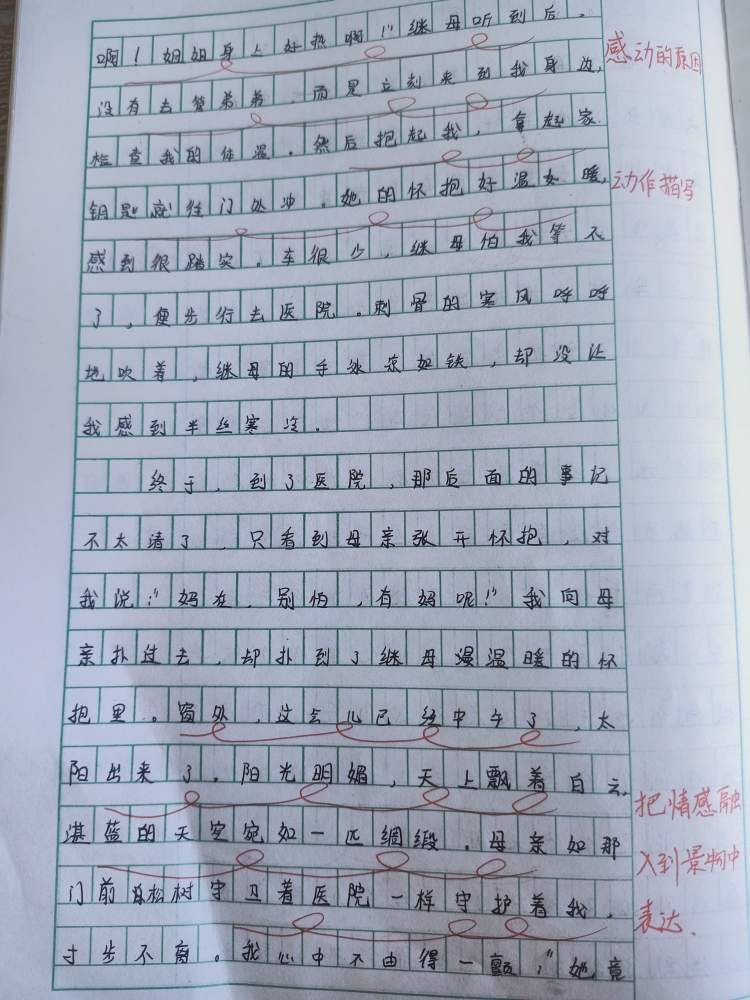 啊！姐姐身上好热啊！”继母听到后，
感动的原因
没有去管弟弟，而是立刻来到我身边，
检查我的体温。然后抱起我，拿起家
钥匙就往门外冲。她的怀抱好温如暖，
动作描写
感到很踏实。车很少，继母怕我等不
了，便步行去医院。刺骨的寒风呼呼
地吹着，继母的手冰凉如铁，却没让
我感到半丝寒冷。
终于，到了医院，那后面的事记
不太清了，只看到母亲张开怀抱，对
我说：“妈在，别怕，有妈呢！”我向母
亲扑过去，却扑到了继母漫温暖的怀
抱里。窗外，这会儿已经中午了，太
阳出来了。阳光明媚，天上飘着白云，
把情感融
湛蓝的天空宛如一匹绸缎。母亲如那
入到景物中
门前松树守卫着医院一样守护着我，
表达.
寸步不离。我心中不由得一颤：“她竟